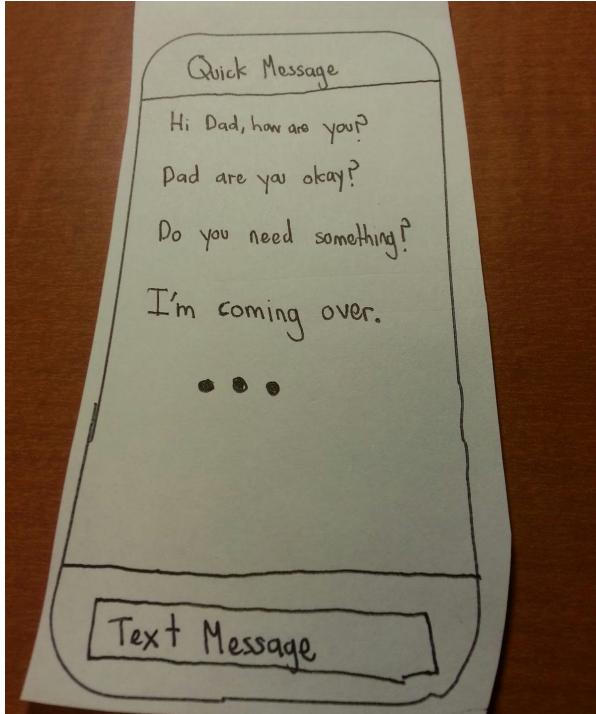 Quick Message
Hi Dad, how are you?
Dad are you okay?
Do you need something?
I'm coming over.
...
Text Message